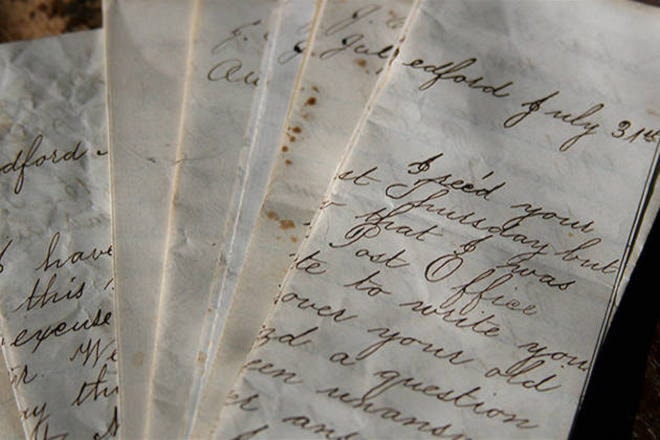 dford
have
this
excuse
r. We
ay th
Au
J. Jul
edford July 31st
I rec'd your
st Thursday but
that I was
Post Office
te to write you
over your old
nd a question
een unansw
er an